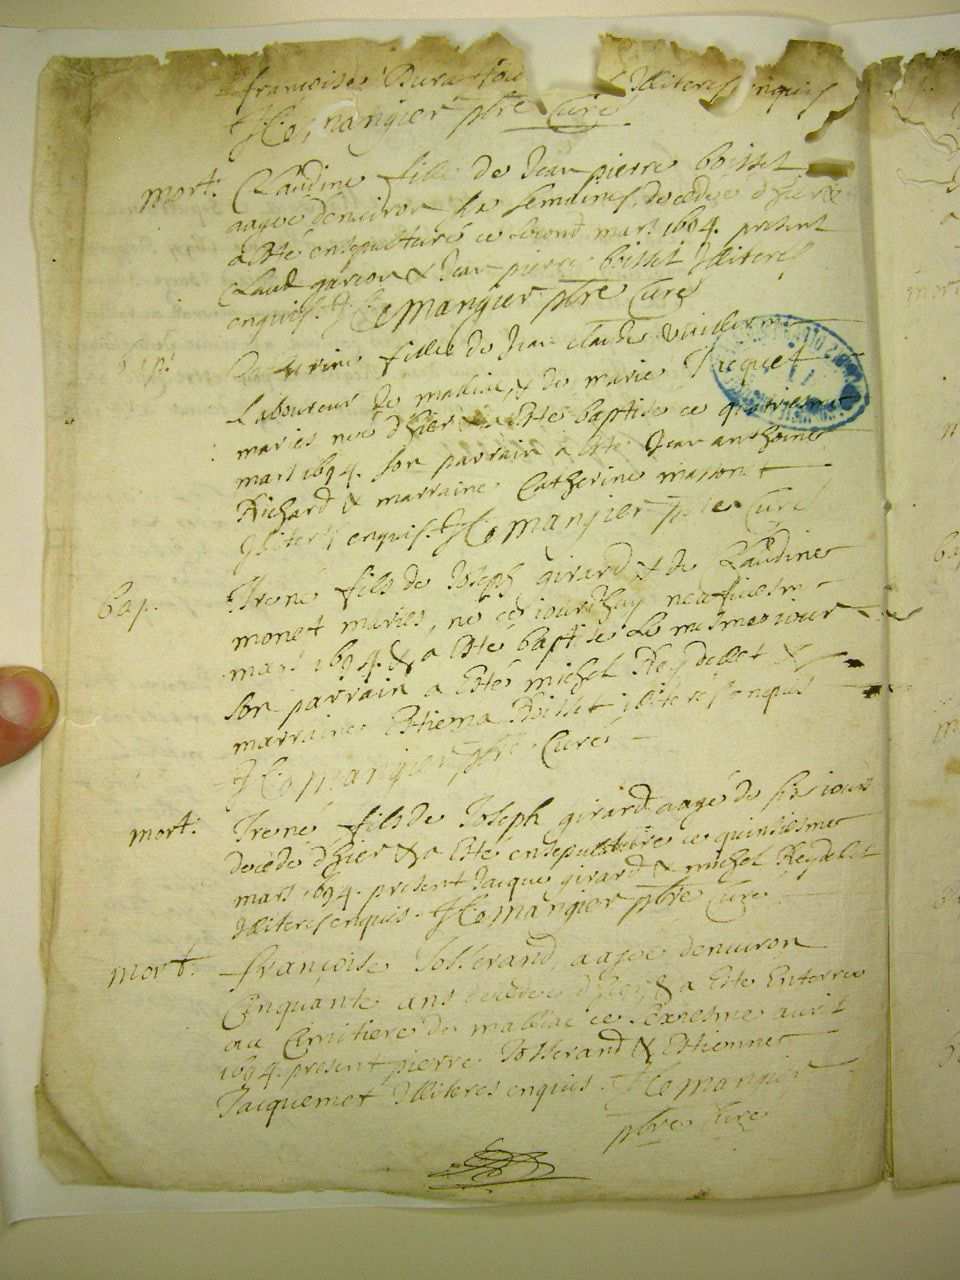 françoise Illiteres enquis
mangier pbre Curé
mort. Claudine fille de Jean pierre boisset
aagée denuiron six semaines, decedee d'hier &
a esté ensepulturé ce second mars 1694. present
Claud garson & Jean pierre boisset Illiteres
enquis. Mangier pbre Curé
bap. Caterine fille de Jean claude
Laboureur de & de marie Jacquet
maries née d'hier & a esté baptisée ce quatriesme
mars 1694. son parrain a esté Jean anthoine
Richard & marraine Catherine masson
Illiteres enquis. Mangier pbre Curé
bap. Irené fils de Joseph girard & de Claudine
monet mariés, né ce iourdhuy neufuiesme
mars 1694. & a esté baptisé Le mesme iour
son parrain a esté michel Reydellet &
marraine Boisset illiteres enquis
mangier pbre Curé
mort. Irené fils de Joseph girard aagé de six iours
decedé d'hier & a esté ensepulturé ce quinsiesme
mars 1694. present Jacque girard & michel Reydelet
Illiteres enquis. Mangier pbre Curé
mort. françoise Josserand aagée denuiron
Cinquante ans decedée d'hier & a esté Enterrée
au Cimitiere de ce auril
1694. present pierre Josserand & Estienne
Jacquemet Illiteres enquis. Mangier
pbre Curé